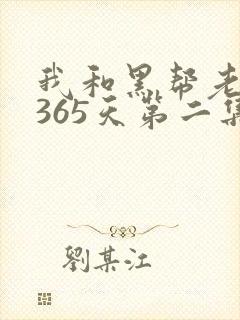 我和黑帮老
365天第二集
劉某江